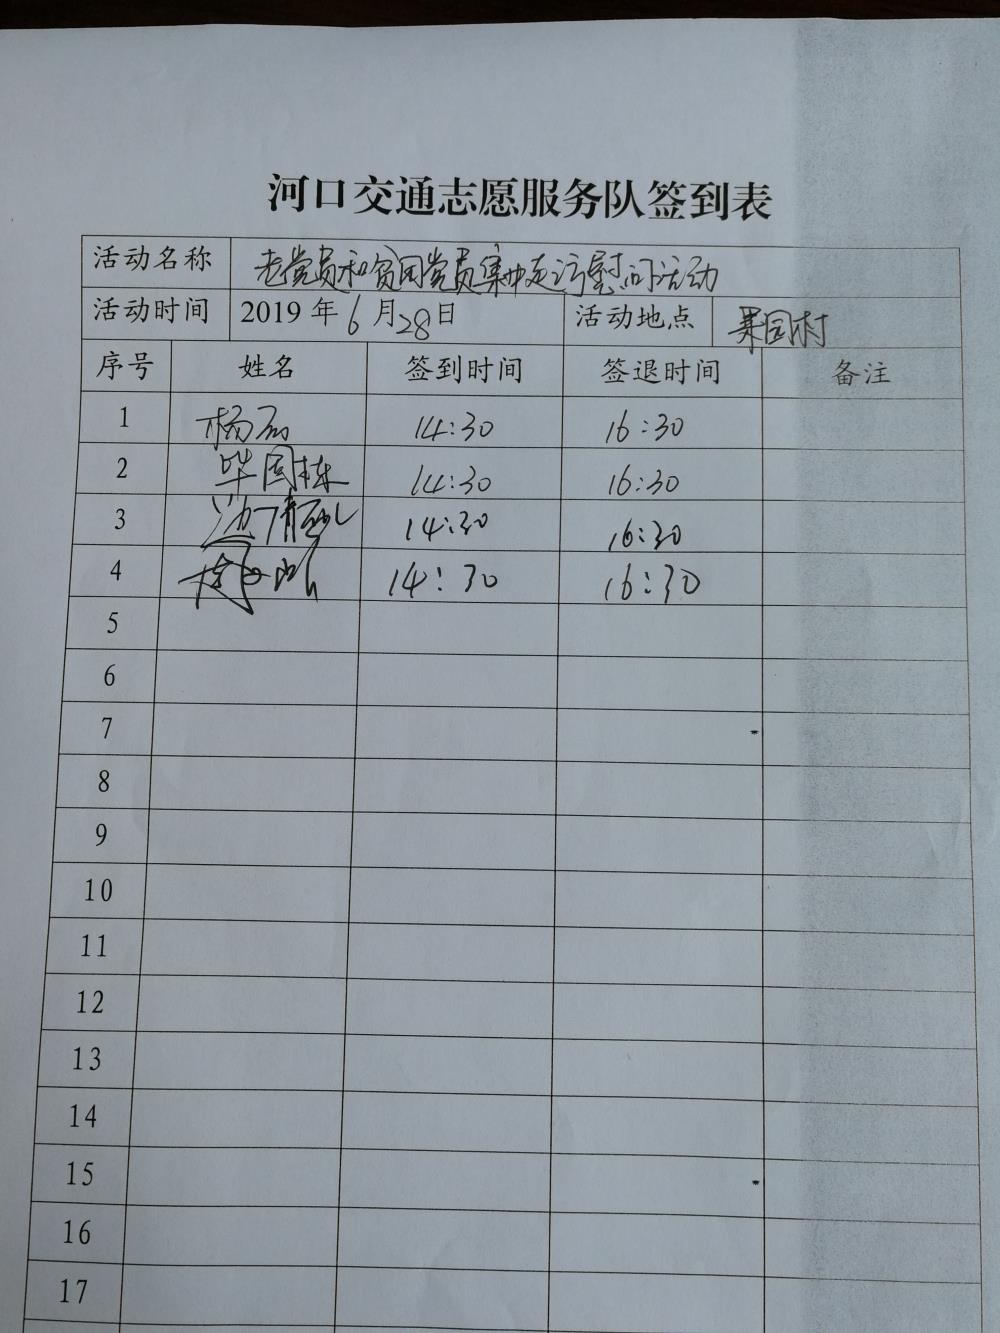 河口交通志愿服务队签到表
活动名称 老党员和贫困党员集中走访慰问活动
活动时间 2019年6月28日 活动地点 果园村
序号 姓名 签到时间 签退时间 备注
1 杨石 14:30 16:30
2 毕国栋 14:30 16:30
3 14:30 16:30
4 14:30 16:30
5
6
7
8
9
10
11
12
13
14
15
16
17